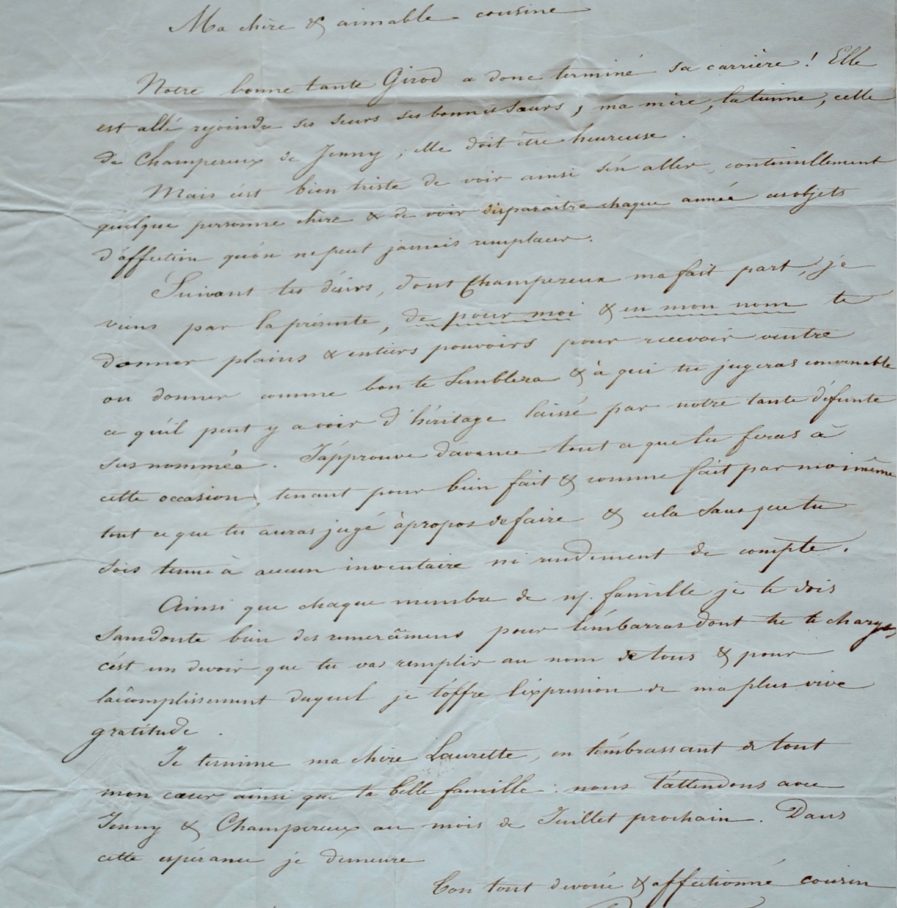 Ma chère & aimable cousine
Notre bonne tante Girod a donc terminé sa carrière ! Elle
est allé rejoindre ses seurs ses bonnes sœurs, ma mère, la tienne, celle
de Champereux de Jenny, elle doit être heureuse.
Mais c'est bien triste de voir ainsi s'én aller, continuellement
quelque personne chère & de voir disparaitre chaque année ces objets
d'affection qu'on ne peut jamais remplacer.
Suivant tes désirs, dont Champereux m'a fait part, je
viens par la présente, de pour moi & en mon nom te
donner plains & entiers pouvoirs pour recevoir vendre
ou donner comme bon te semblera & à qui tu jugeras convenable
ce qu'il peut y avoir d'héritage laissé par notre tante défunte
susnommée. J'approuve d'avance tout ce que tu feras à
cette occasion, tenant pour bien fait & comme fait par moi même
tout ce que tu auras jugé àpropos de faire & cela sans que tu
sois tenue à aucun inventaire ni rendement de compte.
Ainsi que chaque membre de famille je te dois
sans doute bien des remercîmens pour l'embarras dont tu te charges,
c'est un devoir que tu vas remplir au nom de tous & pour
l'acomplissement duquel je t'offre l'expression de ma plus vive
gratitude.
Je termine ma chère Laurette, en t'embrassant de tout
mon cœur ainsi que ta belle famille. nous t'attendons avec
Jenny & Champereux au mois de Juillet prochain. Dans
cette espérance je demeure
Ton tout devoué & affectionné cousin